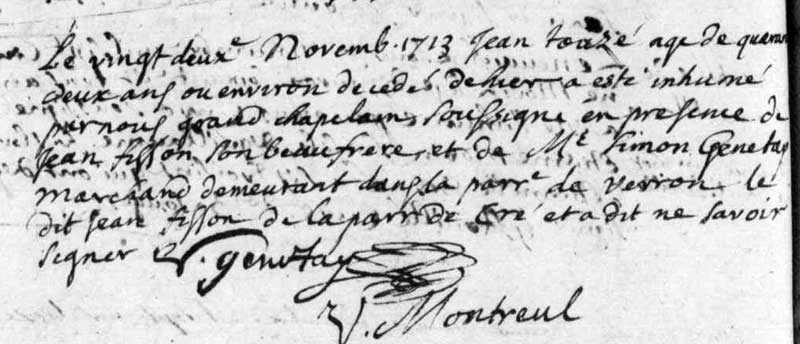 Le vingt deuxe. Novemb. 1713 Jean touzé agé de quaran
deux ans ou environ decedé dehier a esté inhumé
par nous grand chapelain, soussigné en presence de
Jean fisson son beaufrere, et de Me Simon Genetay
marchand demeurant dans la parre de verron le
dit Jean fisson de la parr de Cré et a dit ne savoir
signer S. genetay
Montreul